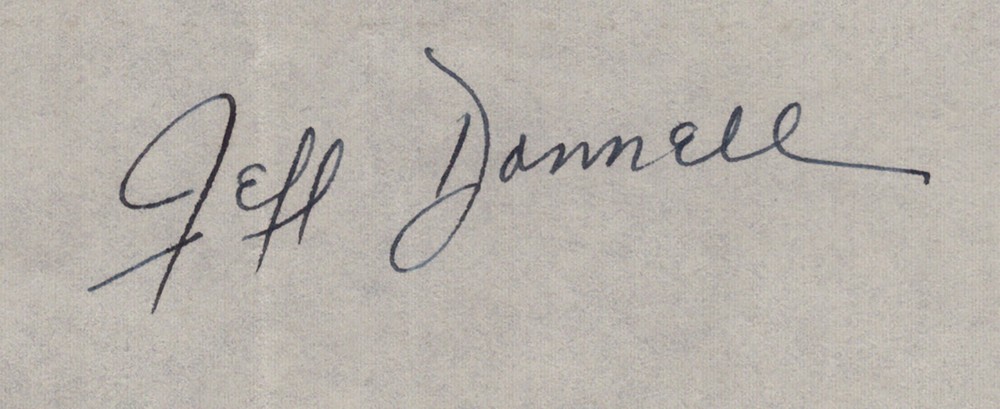 Jeff Donnell